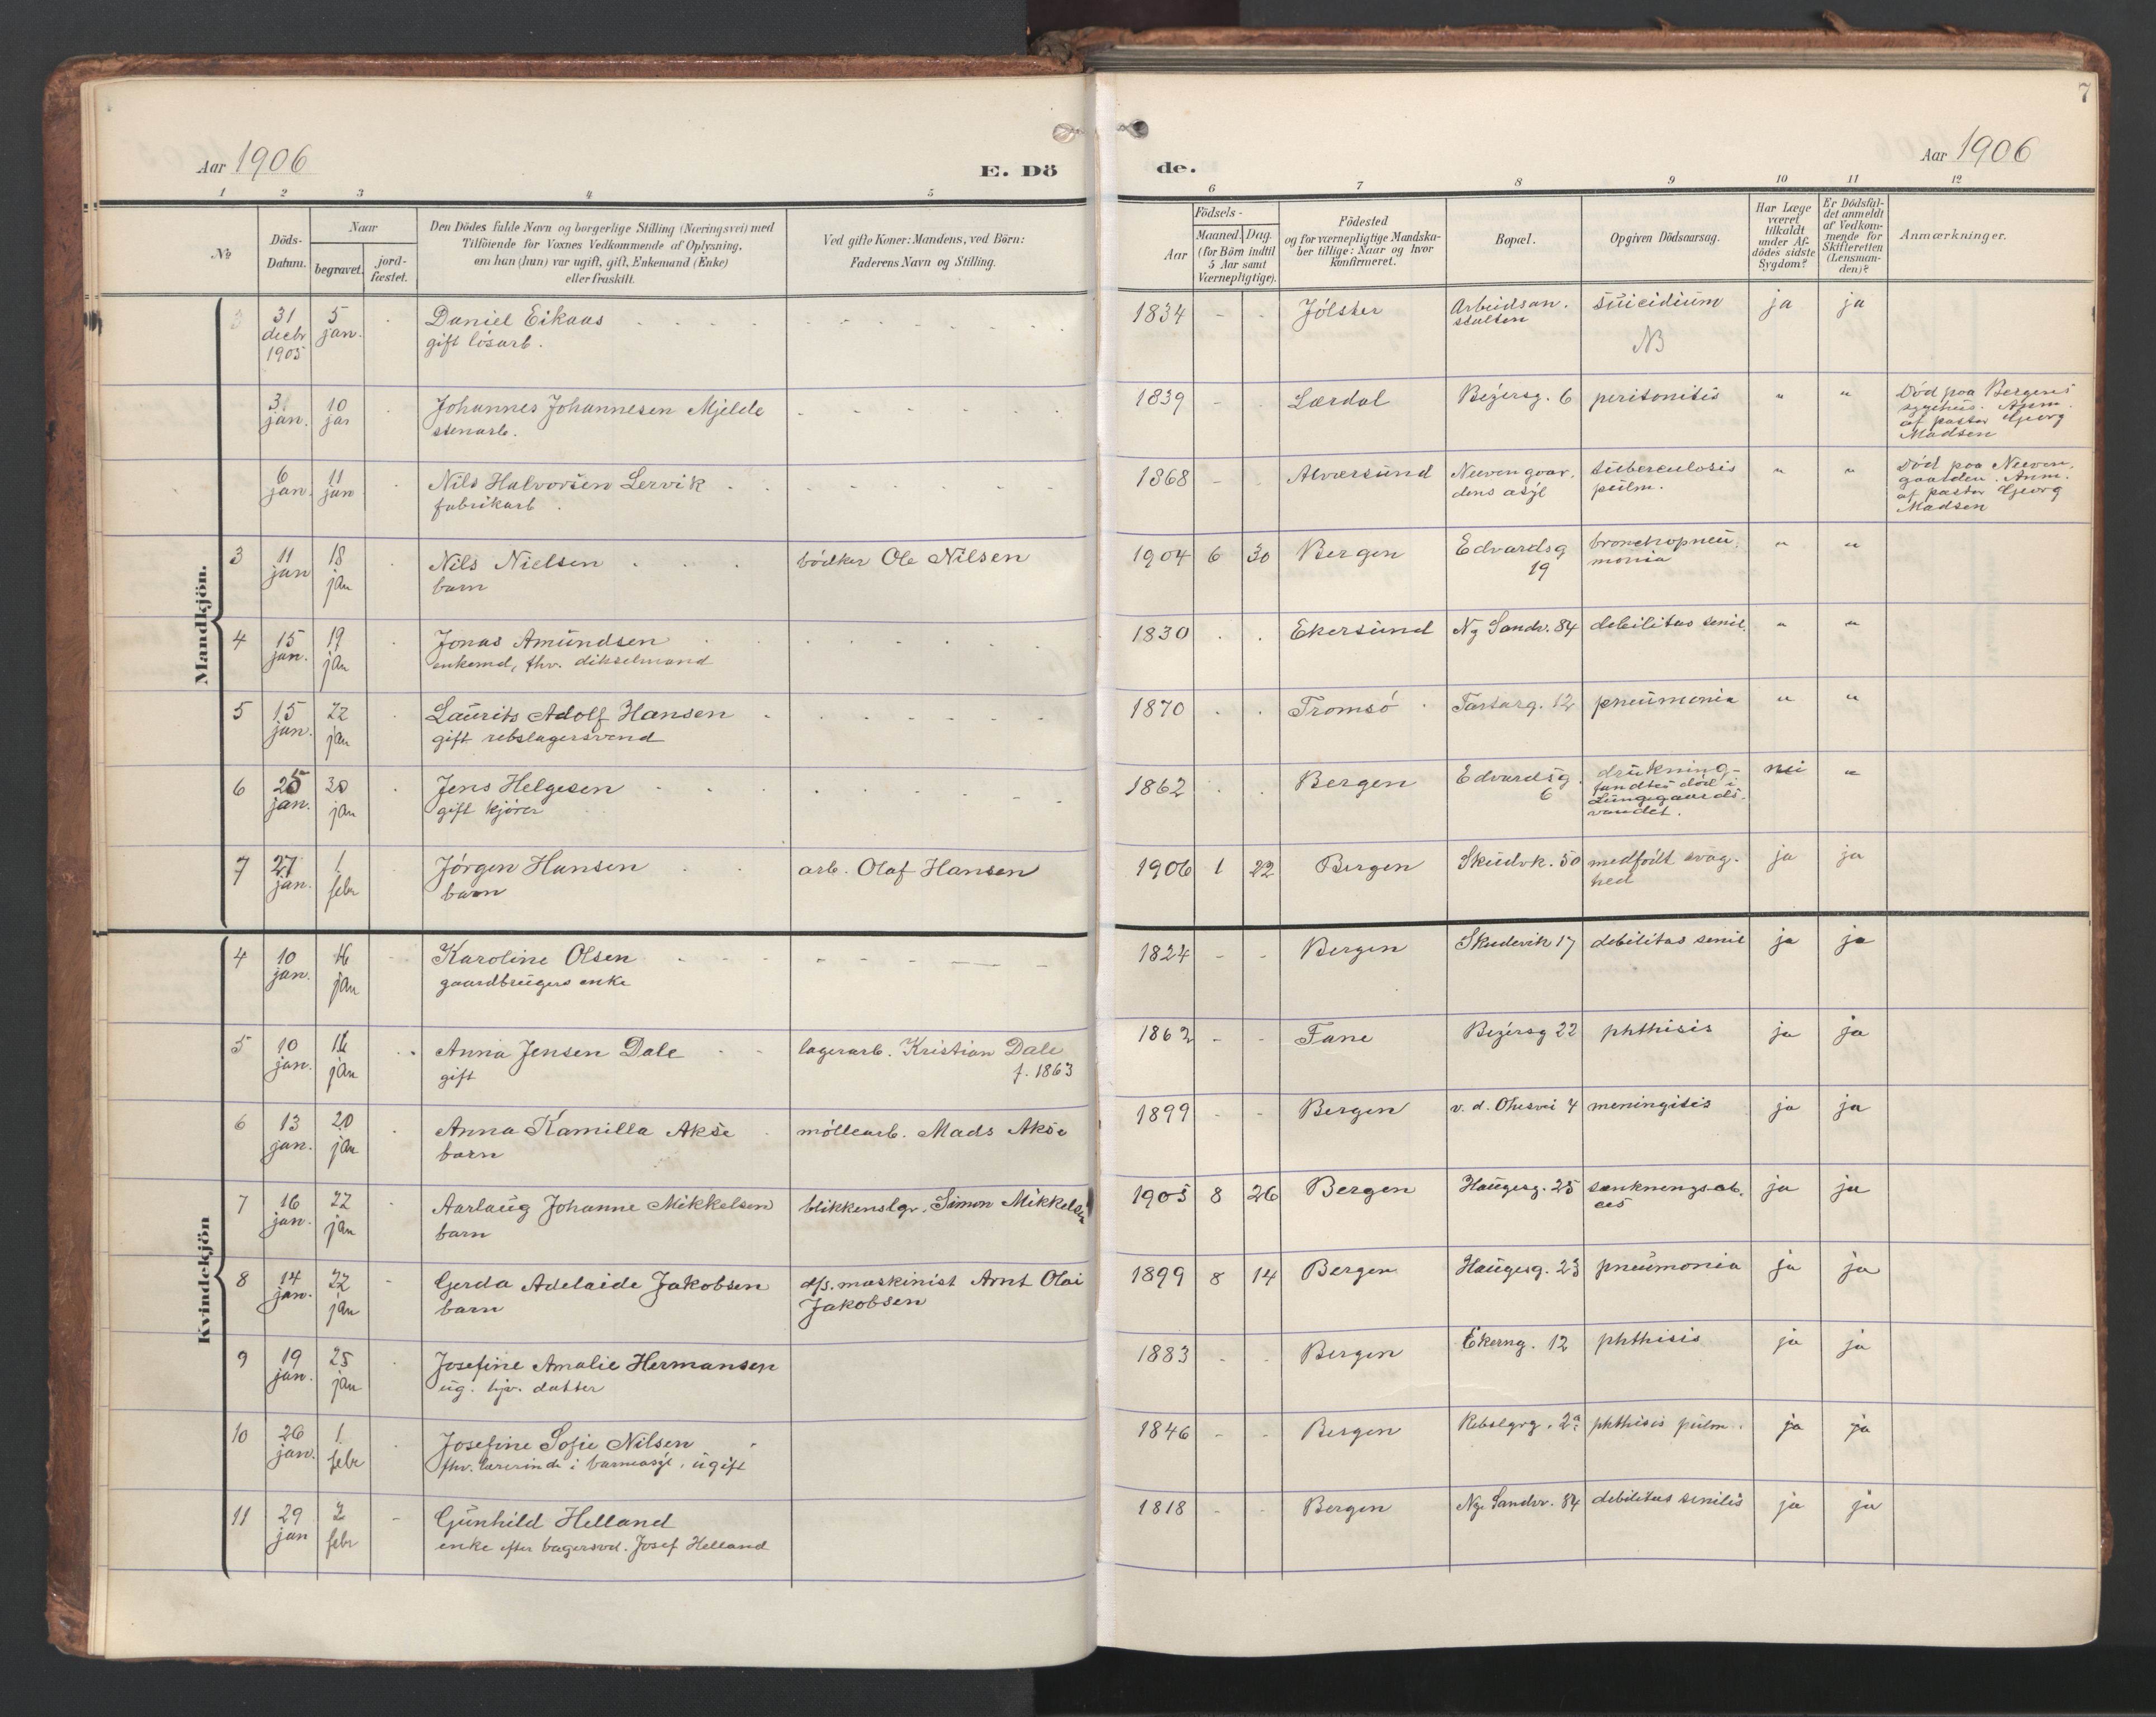 7
Aar 1906
E. Dö
de.
Aar 1906
1 2 3 4 5 6 7 8 9 10 11 12
No
Döds-
Datum.
Naar
begravet.
jord-
fæstet.
Den Dödes fulde Navn og borgerlige Stilling (Næringsvei) med
Tilföiende for Voxnes Vedkommende af Oplysning,
om han (hun) var ugift, gift, Enkemand (Enke)
eller fraskilt.
Ved gifte Koner: Mandens, ved Börn:
Faderens Navn og Stilling.
Födsels-
Aar
Maaned. Dag.
(for Börn indtil
5 Aar samt
Værnepligtige).
Födested
og for værnepligtige Mandska-
ber tillige: Naar og hvor
konfirmeret.
Bopæl.
Opgiven Dödsaarsag.
Har Læge
været
tilkaldt
under Af-
dödes sidste
Sygdom?
Er Dödsfal-
det anmeldt
af Vedkom-
mende for
Skifteretten
(Lensman-
den)?
Anmærkninger.
Mandkjön.
31 decbr 1905 5 jan. Daniel Eikaas 1834 - - Jölster Arbeidsan. suicidium ja ja
gift lösarb. stalten NB
3 jan. 10 jan Johannes Johannesen Mjelde 1839 Lærdal Bezersg. 6 peritonitis " " Död paa Bergens
stenarb. sygehus. Anm.
af pastor Georg
Madsen
6 jan. 11 jan Nils Halvorsen Lervik 1868 - Alversund Neevengaar. tuberculosis " " Död paa Neeven.
fabrikarb. dens asyl pulm. gaarden. Anm.
af pastor Georg
Madsen
3 11 jan 18 jan Nils Nielsen bödker Ole Nilsen 1904 6 30 Bergen Edvardsg bronchopneu. " "
barn 19 monia
4 15 jan. 19 jan Jonas Amundsen 1830 Ekersund Ny Sandv. 84 debilitas senil. " "
enkemd, fhv. dikselmand
5 15 jan. 22 jan Laurits Adolf Hansen 1870 Tromsö Tartarg. 12 pneumonia " "
gift rebslagersvend
6 25 jan. 30 jan Jens Helgesen 1862 Bergen Edvardsg. drukning, - nei "
gift kjörer 6 fandtes död i
Lungegaards-
vandet.
7 27 jan. 1 febr Jörgen Hansen arb. Olaf Hansen 1906 1 22 Bergen Skudvk. 50 medfödt svag- ja ja
barn hed
Kvindekjön
4 10 jan. 16 jan Karoline Olsen 1824 - - Bergen Skudevik 17 debilitas senil ja ja
gaardbrugers enke
5 10 jan. 16 jan Anna Jensen Dale lagerarb. Kristian Dale 1862 - - Fane Bezersg 22 phthisis ja ja
gift f. 1863
6 13 jan. 20 jan Anna Kamilla Akse möllearb. Mads Akse 1899 - - Bergen v. d. Ohesvei 4 meningitis ja ja
barn
7 16 jan. 22 jan Aarlaug Johanne Mikkelsen blikkenslgr. Simon Mikkelsen 1905 8 26 Bergen Haugesg. 25 sænkningsab. ja ja
barn ces
8 14 jan. 22 jan Gerda Adelaide Jakobsen d/s. maskinist Arnt Olai 1899 8 14 Bergen Haugesg. 23 pneumonia ja ja
barn Jakobsen
9 19 jan. 25 jan Josefine Amalie Hermansen 1883 - - Bergen Ekerng. 12 phthisis ja ja
ug. hjv. datter
10 26 jan. 1 febr Josefine Sofie Nilsen 1846 - - Bergen Rebslgrg. 2a phthisis pulm. ja ja
fhv. lærerinde i barneasyl, ugift
11 29 jan 2 febr Gunhild Helland 1818 - - Bergen Nye Sandvv. 84 debilitas senilis ja ja
enke efter bagersvd. Josef Helland